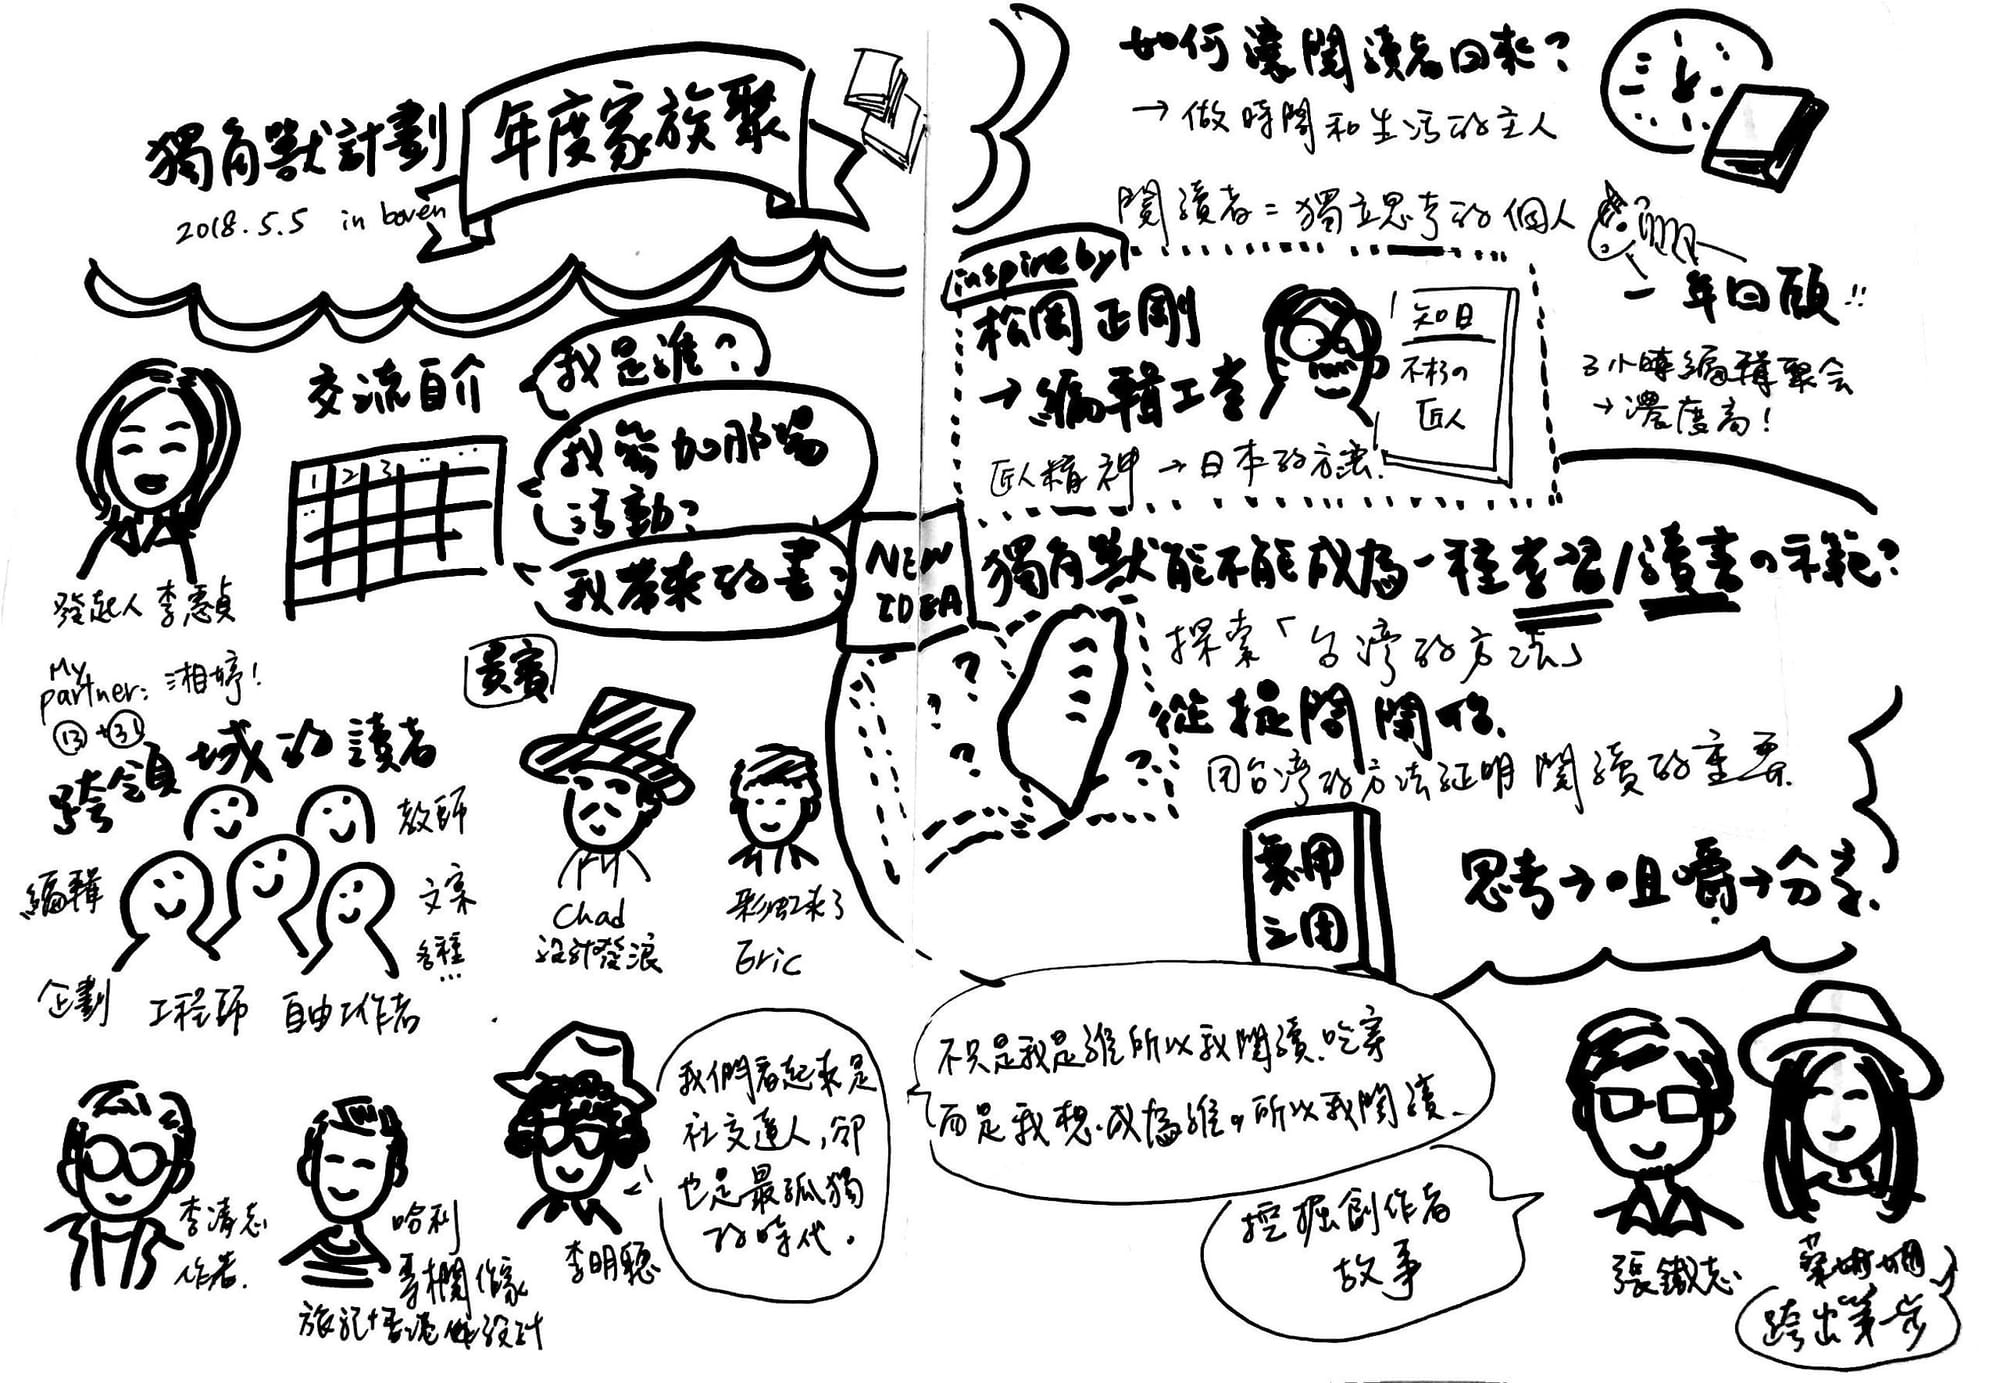 獨角獸計劃
年度家族聚
2018.5.5 in boven
交流自介
我是誰?
我參加那場
活動?
我帶來的書?
1 2 3
發起人 李惠貞
My
partner: 湘婷!
13 + 31
跨領域的讀者
教師
編輯
文案
各種
...
企劃
工程師
自由工作者
貴賓
Chad
設計發浪
彩虹來了
Eric
李清志
作者.
哈利
專欄作家
旅記+香港
李明璁
我們看起來是
社交達人,卻
也是最孤獨
的時代.
如何讓閱讀者回來?
→ 做時間和生活的主人
閱讀者=獨立思考的個人
inspire by
松岡正剛
→ 編輯工學
知日
不朽の
匠人
匠人精神 → 日本的方法!
一年回顧!!
3小時編輯聚會
→ 濃度高!
NEW
IDEA
獨角獸能不能成為一種學習/讀書の示範?
探索「台灣的方法」
從提問開始.
用台灣的方法証明閱讀的重要.
無用
之用
思考→咀嚼→分享.
不只是我是誰所以我閱讀.吃穿
而是我想成為誰。所以我閱讀.
挖掘創作者
故事
張鐵志
跨出第一步